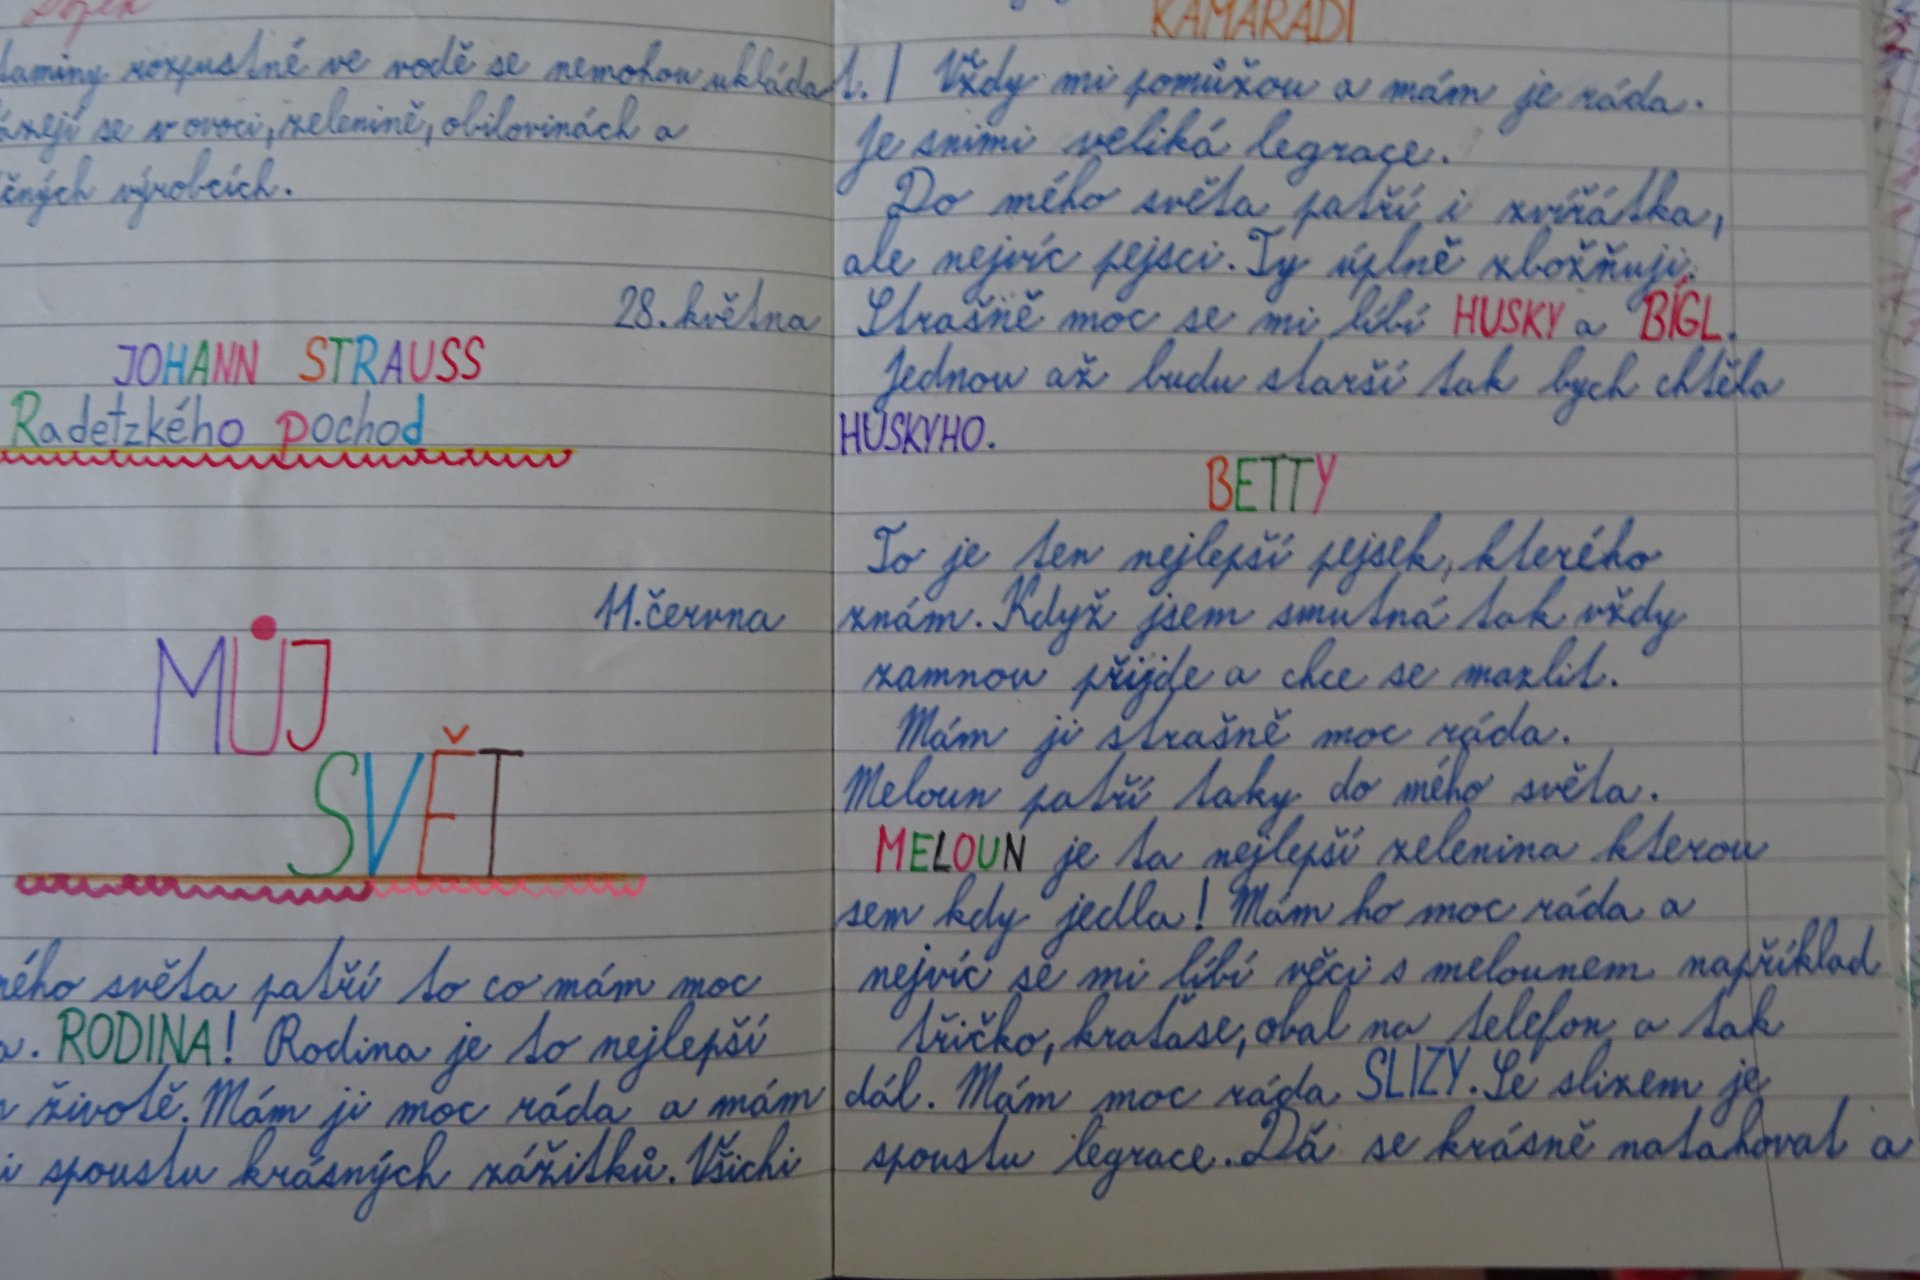 taminy rozpustné ve vodě se nemohou ukládat.
ázejí se v ovoci, zelenině, obilovinách a
čných výrobcích.
28. května
JOHANN STRAUSS
Radetzkého pochod
11. června
MŮJ
SVĚT
mého světa patří to co mám moc
a. RODINA! Rodina je to nejlepší
v životě. Mám ji moc ráda a mám
i spoustu krásných zážitků. Všichi
KAMARÁDI
Vždy mi pomůžou a mám je ráda.
Je snimi veliká legrace.
Do mého světa patří i zvířátka,
ale nejvíc pejsci. Ty úplně zbožňuji.
Strašně moc se mi líbí HUSKY a BÍGL.
Jednou až budu starší tak bych chtěla
HUSKYHO.
BETTY
To je ten nejlepší pejsek, kterého
znám. Když jsem smutná tak vždy
zamnou přijde a chce se mazlit.
Mám ji strašně moc ráda.
Meloun patří taky do mého světa.
MELOUN je ta nejlepší zelenina kterou
sem kdy jedla! Mám ho moc ráda a
nejvíc se mi líbí věci s melounem například
tričko, kraťase, obal na telefon a tak
dál. Mám moc ráda SLIZY. Se slizem je
spoustu legrace. Dá se krásně natahovat a